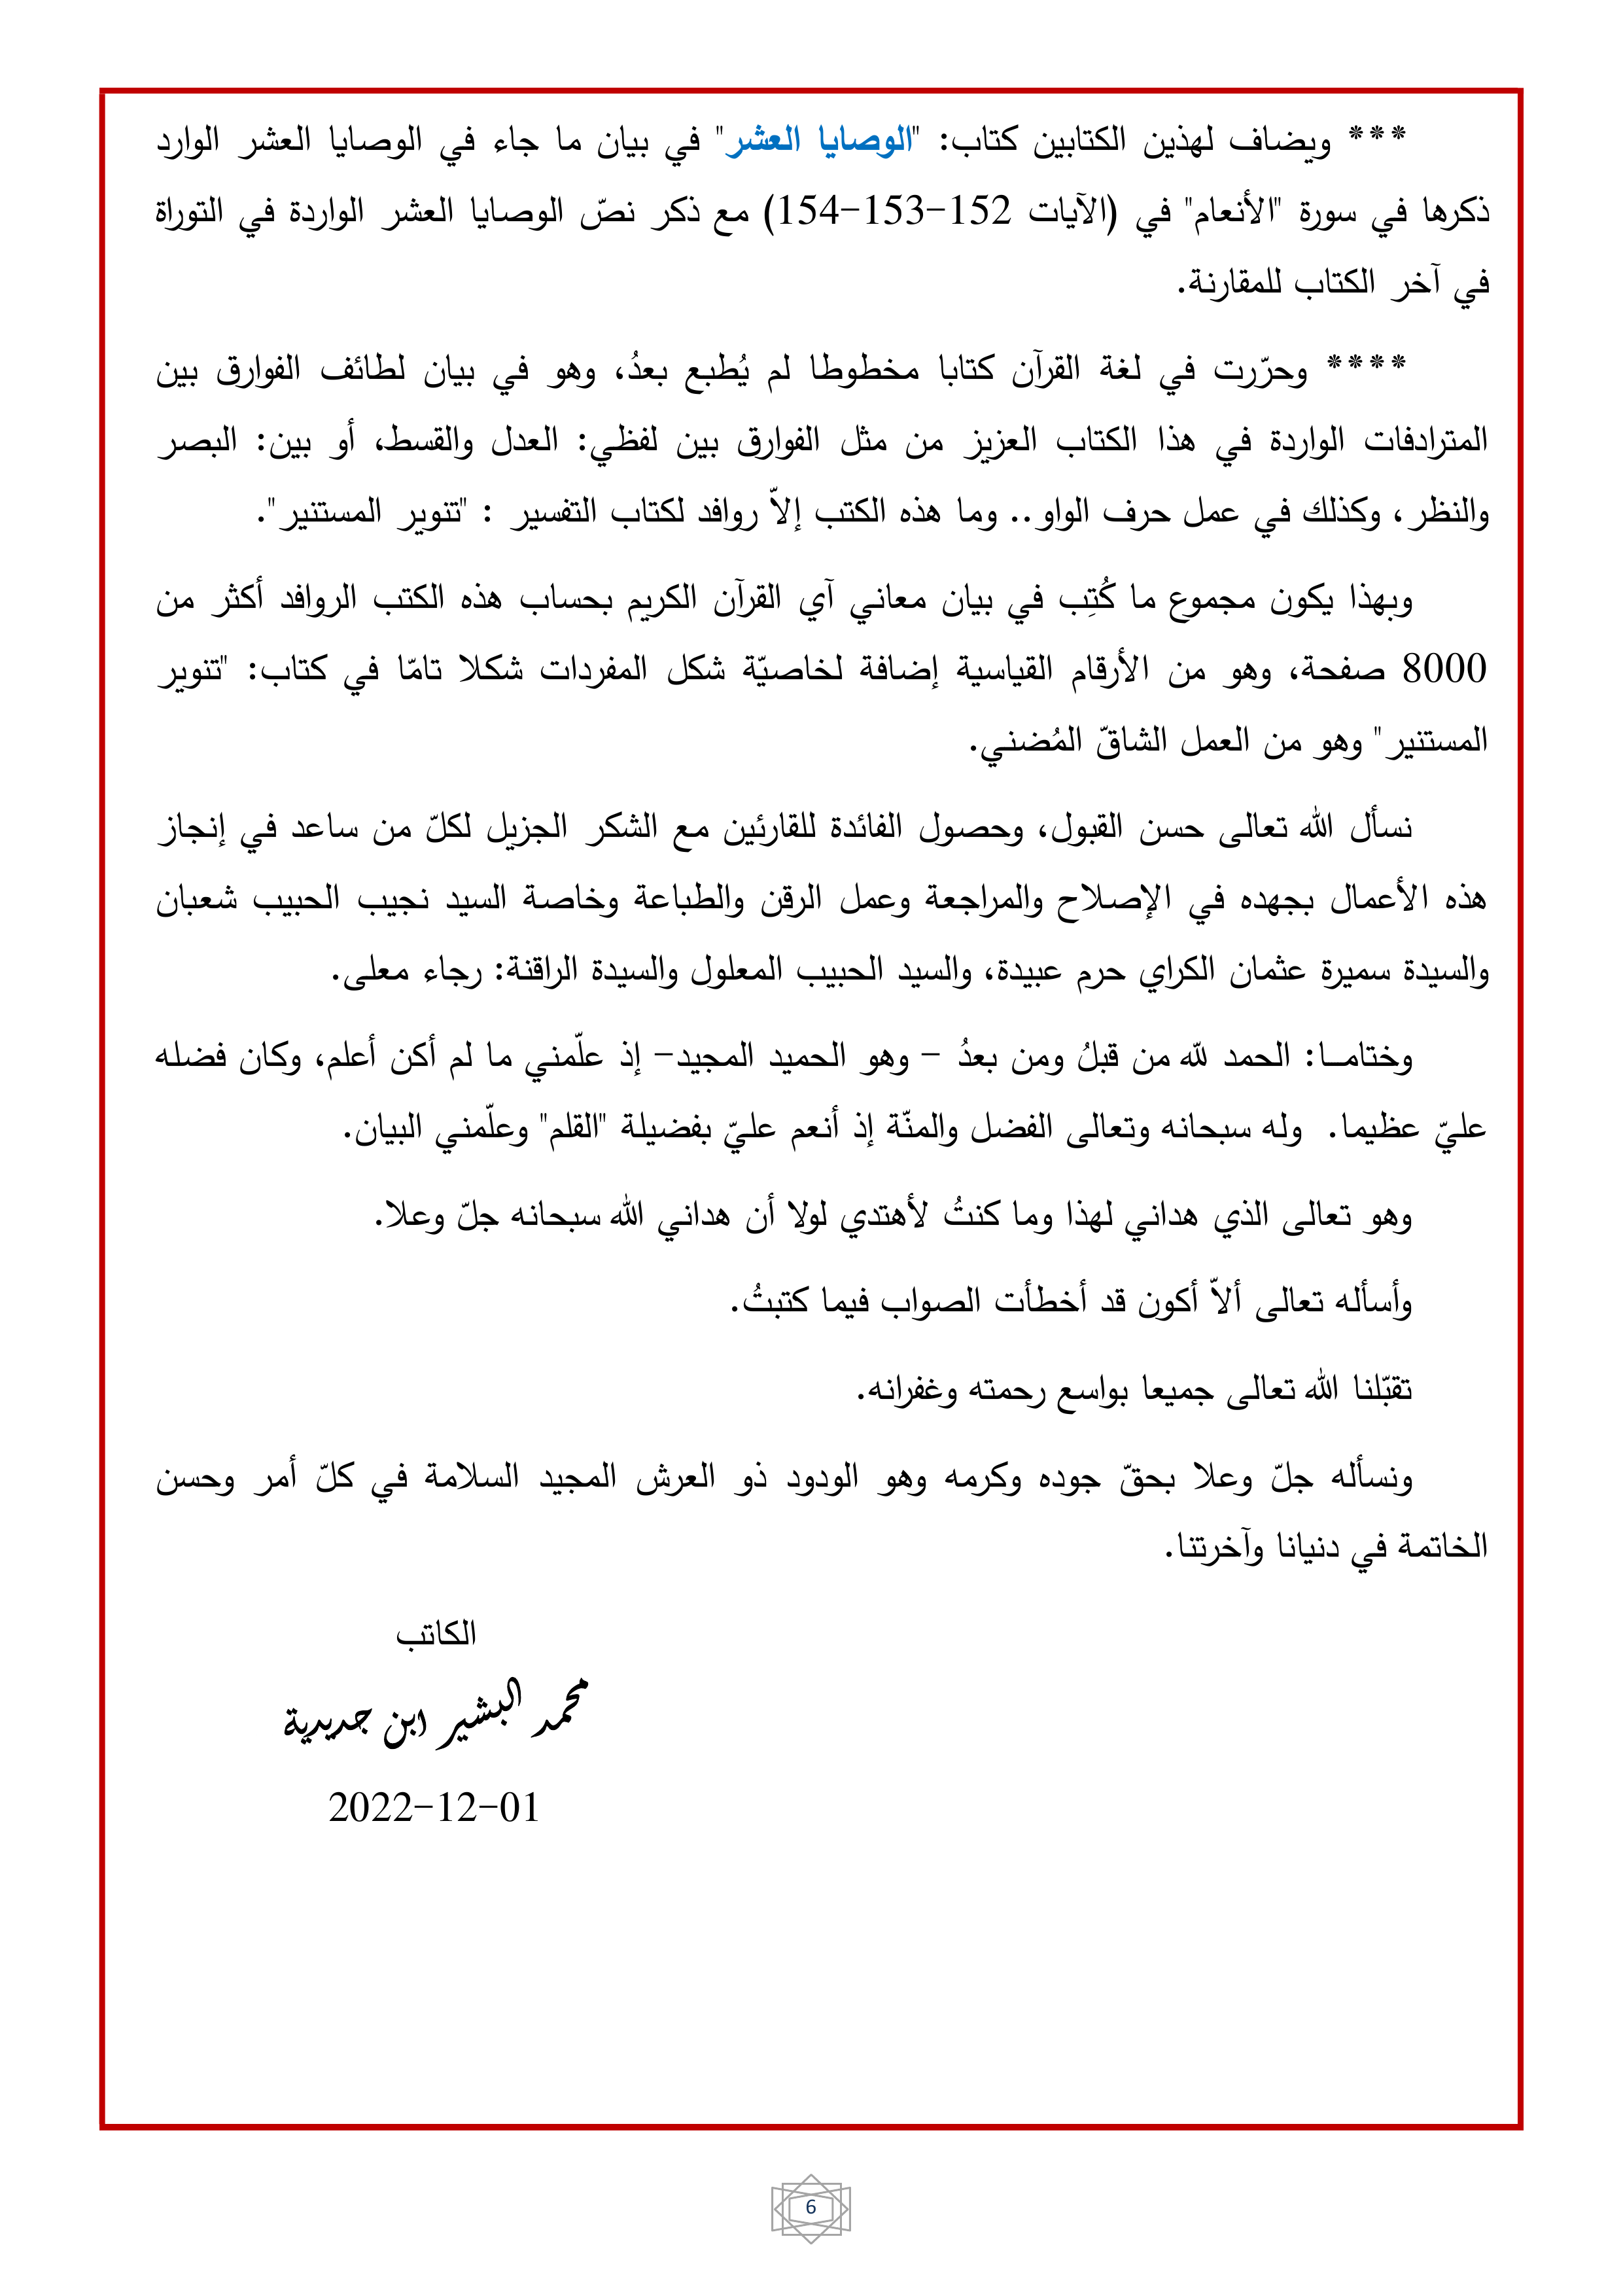 *** ويضاف لهذين الكتابين كتاب: "الوصايا العشر" في بيان ما جاء في الوصايا العشر الوارد
ذكرها في سورة "الأنعام" في (الآيات 152-153-154) مع ذكر نصّ الوصايا العشر الواردة في التوراة
في آخر الكتاب للمقارنة.
**** وحرّرت في لغة القرآن كتابا مخطوطا لم يُطبع بعدُ، وهو في بيان لطائف الفوارق بين
المترادفات الواردة في هذا الكتاب العزيز من مثل الفوارق بين لفظي: العدل والقسط، أو بين: البصر
والنظر، وكذلك في عمل حرف الواو.. وما هذه الكتب إلاّ روافد لكتاب التفسير : "تنوير المستنير".
وبهذا يكون مجموع ما كُتِب في بيان معاني آي القرآن الكريم بحساب هذه الكتب الروافد أكثر من
8000 صفحة، وهو من الأرقام القياسية إضافة لخاصيّة شكل المفردات شكلا تامّا في كتاب: "تنوير
المستنير" وهو من العمل الشاقّ المُضني.
نسأل الله تعالى حسن القبول، وحصول الفائدة للقارئين مع الشكر الجزيل لكلّ من ساعد في إنجاز
هذه الأعمال بجهده في الإصلاح والمراجعة وعمل الرقن والطباعة وخاصة السيد نجيب الحبيب شعبان
والسيدة سميرة عثمان الكراي حرم عبيدة، والسيد الحبيب المعلول والسيدة الراقنة: رجاء معلى.
وختامــا: الحمد لله من قبلُ ومن بعدُ – وهو الحميد المجيد- إذ علّمني ما لم أكن أعلم، وكان فضله
عليّ عظيما. وله سبحانه وتعالى الفضل والمنّة إذ أنعم عليّ بفضيلة "القلم" وعلّمني البيان.
وهو تعالى الذي هداني لهذا وما كنتُ لأهتدي لولا أن هداني الله سبحانه جلّ وعلا.
وأسأله تعالى ألاّ أكون قد أخطأت الصواب فيما كتبتُ.
تقبّلنا الله تعالى جميعا بواسع رحمته وغفرانه.
ونسأله جلّ وعلا بحقّ جوده وكرمه وهو الودود ذو العرش المجيد السلامة في كلّ أمر وحسن
الخاتمة في دنيانا وآخرتنا.
الكاتب
محمد البشير ابن جديدية
2022-12-01
6